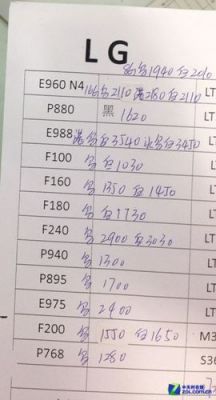 LG
8G 黑1940 白2010
E960 N4 16G 黑2110 港280白2110 LT
P880 黑 1620
E988 港黑白3540 水黑白3450 LT
F100 黑 白1030 LT
F160 黑 1350 白1450 LT
F180 黑 白1730 LT
F240 黑 2900 白3030 LT
P940 黑 1300 LT
P895 黑 1700 LT
E975 黑 2400 LT
F200 黑 1550 白1650 LT
P768 黑 1280 S36
中关村在线
ZOL.COM.CN